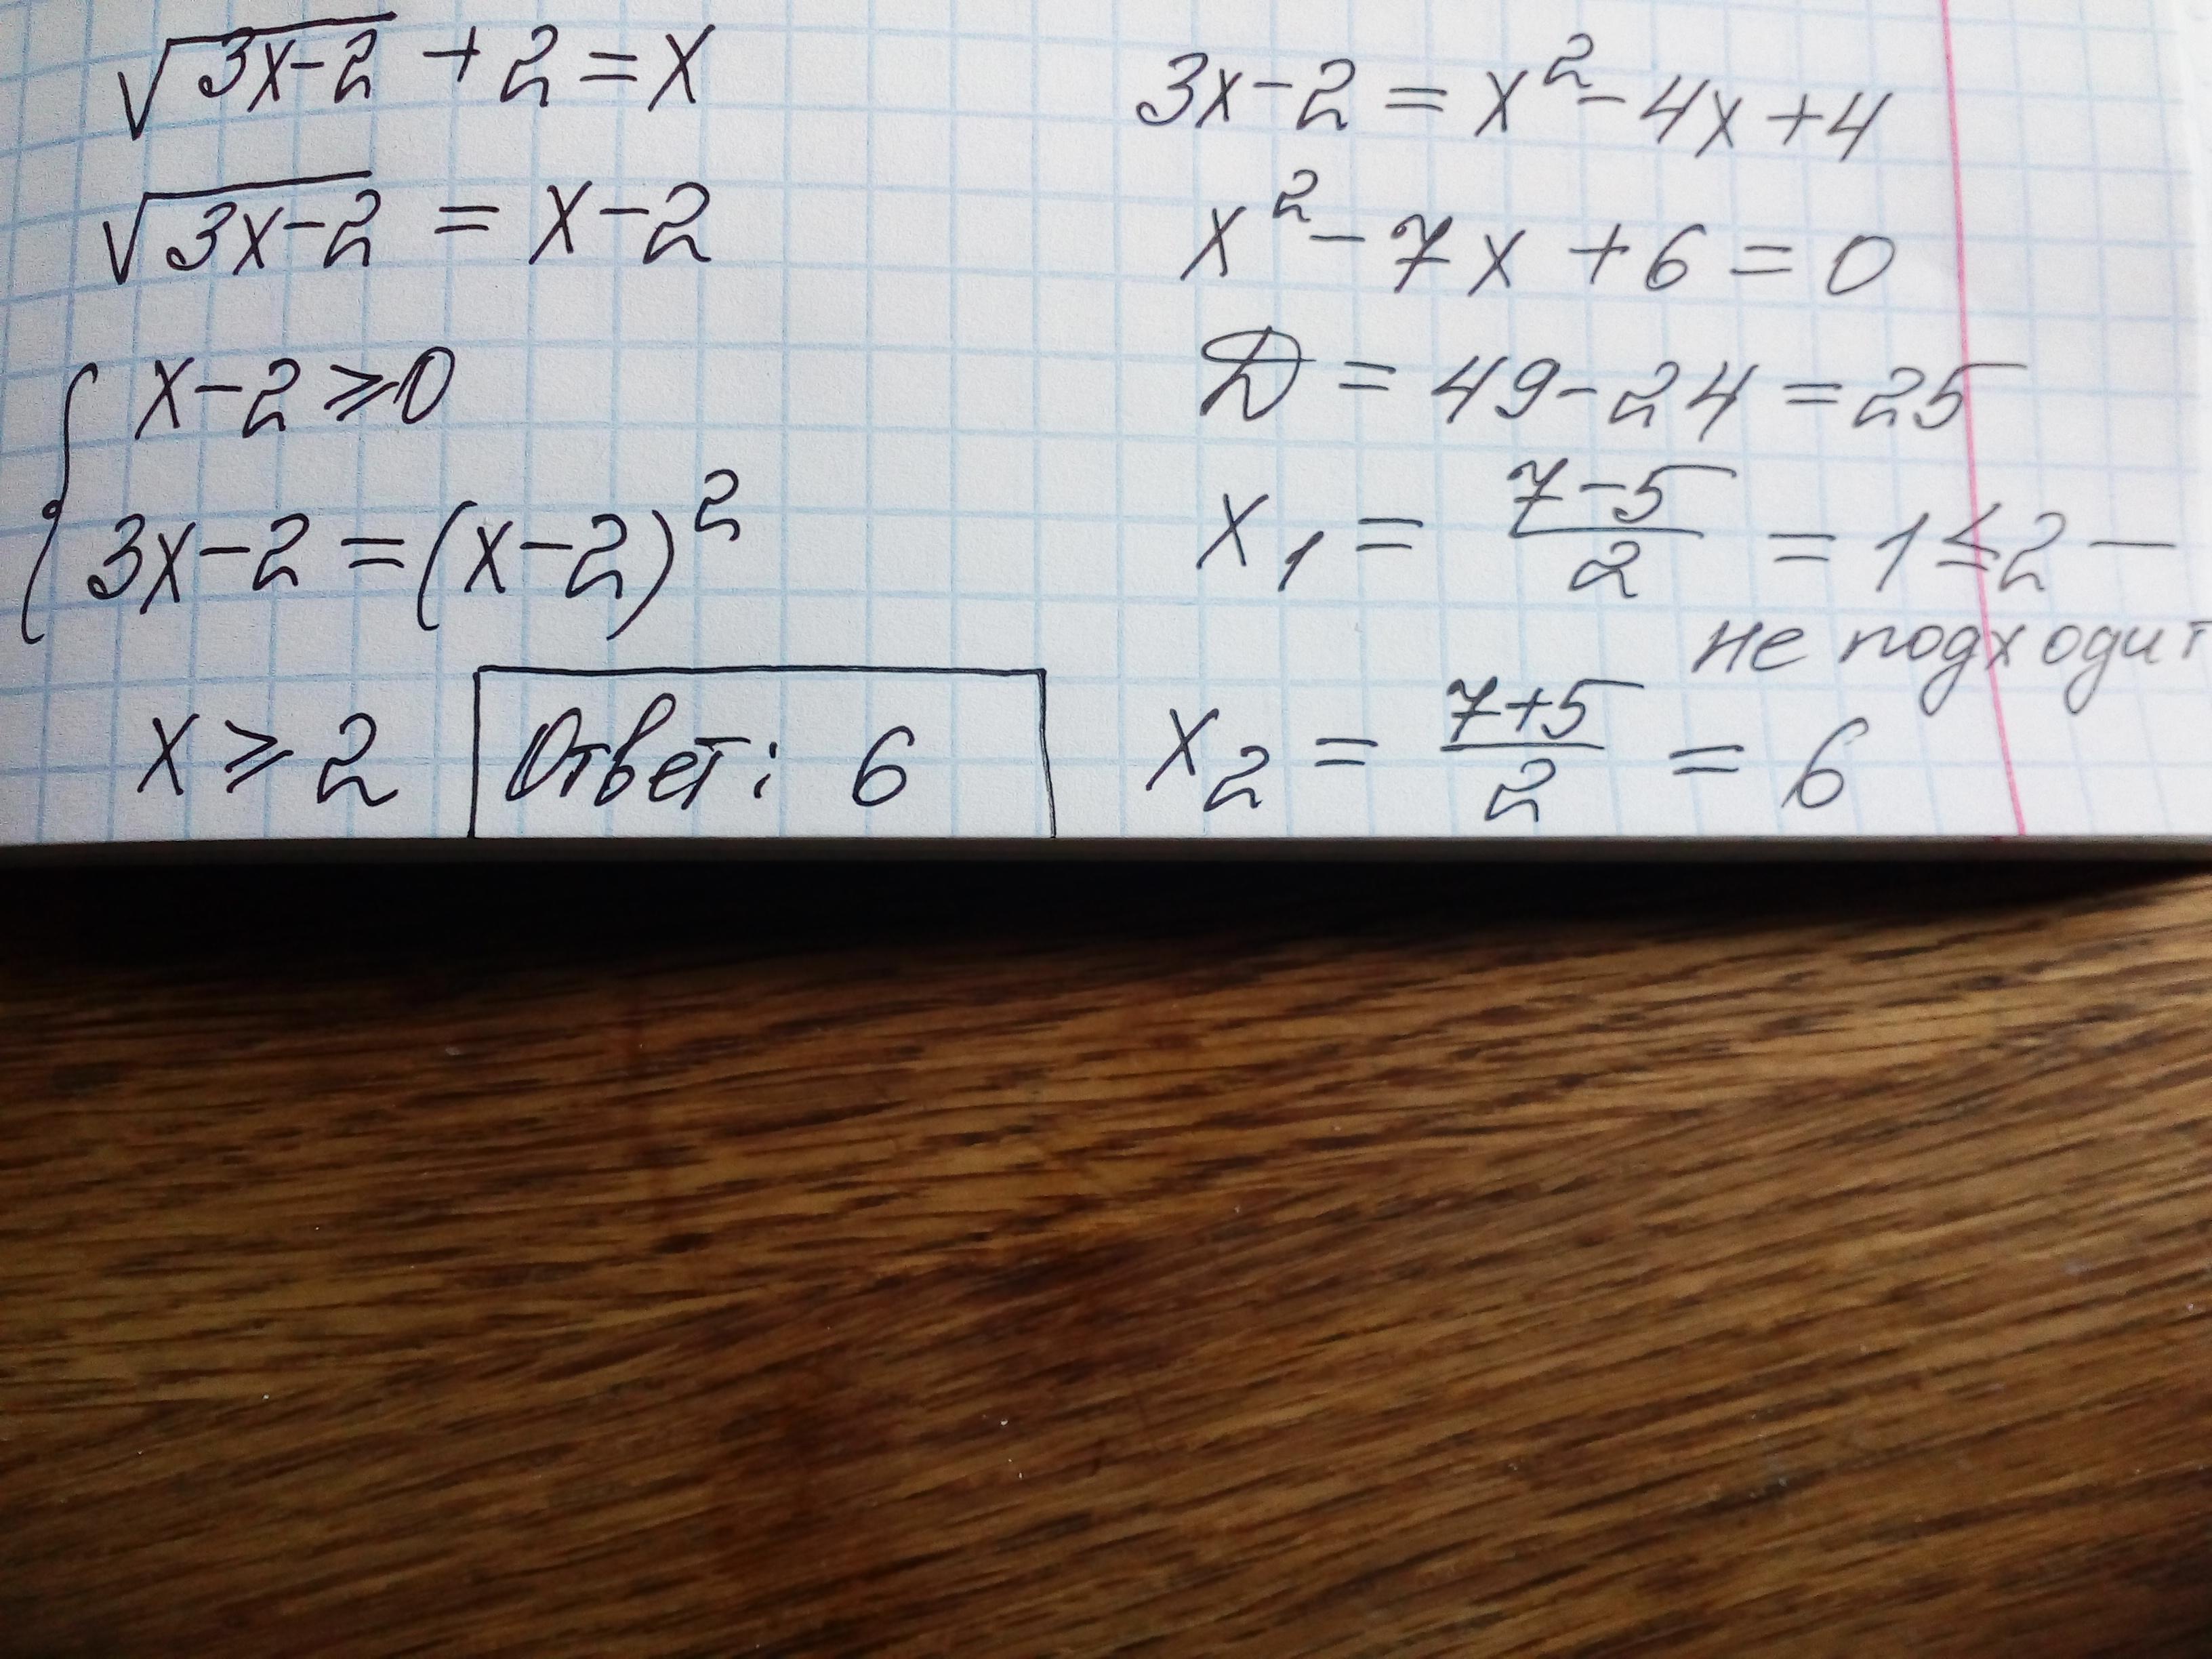 √3x-2 + 2 = x
√3x-2 = x-2
{ x-2 ⩾ 0
3x-2 = (x-2)²
x ⩾ 2
Ответ: 6
3x-2 = x² - 4x + 4
x² - 7x + 6 = 0
D = 49 - 24 = 25
x₁ = (7-5)/2 = 1 ≤ 2 —
не подходит
x₂ = (7+5)/2 = 6